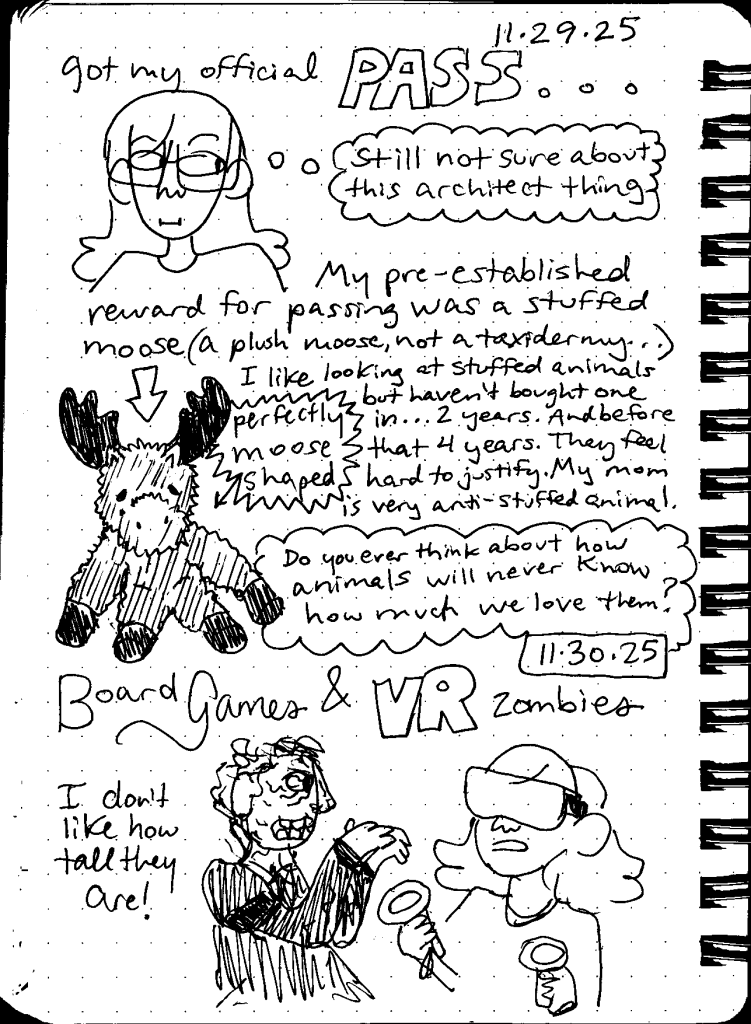 11.29.25
got my official PASS...
Still not sure about
this architect thing
My pre-established
reward for passing was a stuffed
moose (a plush moose, not a taxidermy...)
I like looking at stuffed animals
but haven't bought one
in... 2 years. And before
that 4 years. They feel
hard to justify. My mom
is very anti-stuffed animal.
perfectly
moose
shaped
Do you ever think about how
animals will never know
how much we love them?
11.30.25
Board Games & VR zombies
I don't
like how
tall they
are!